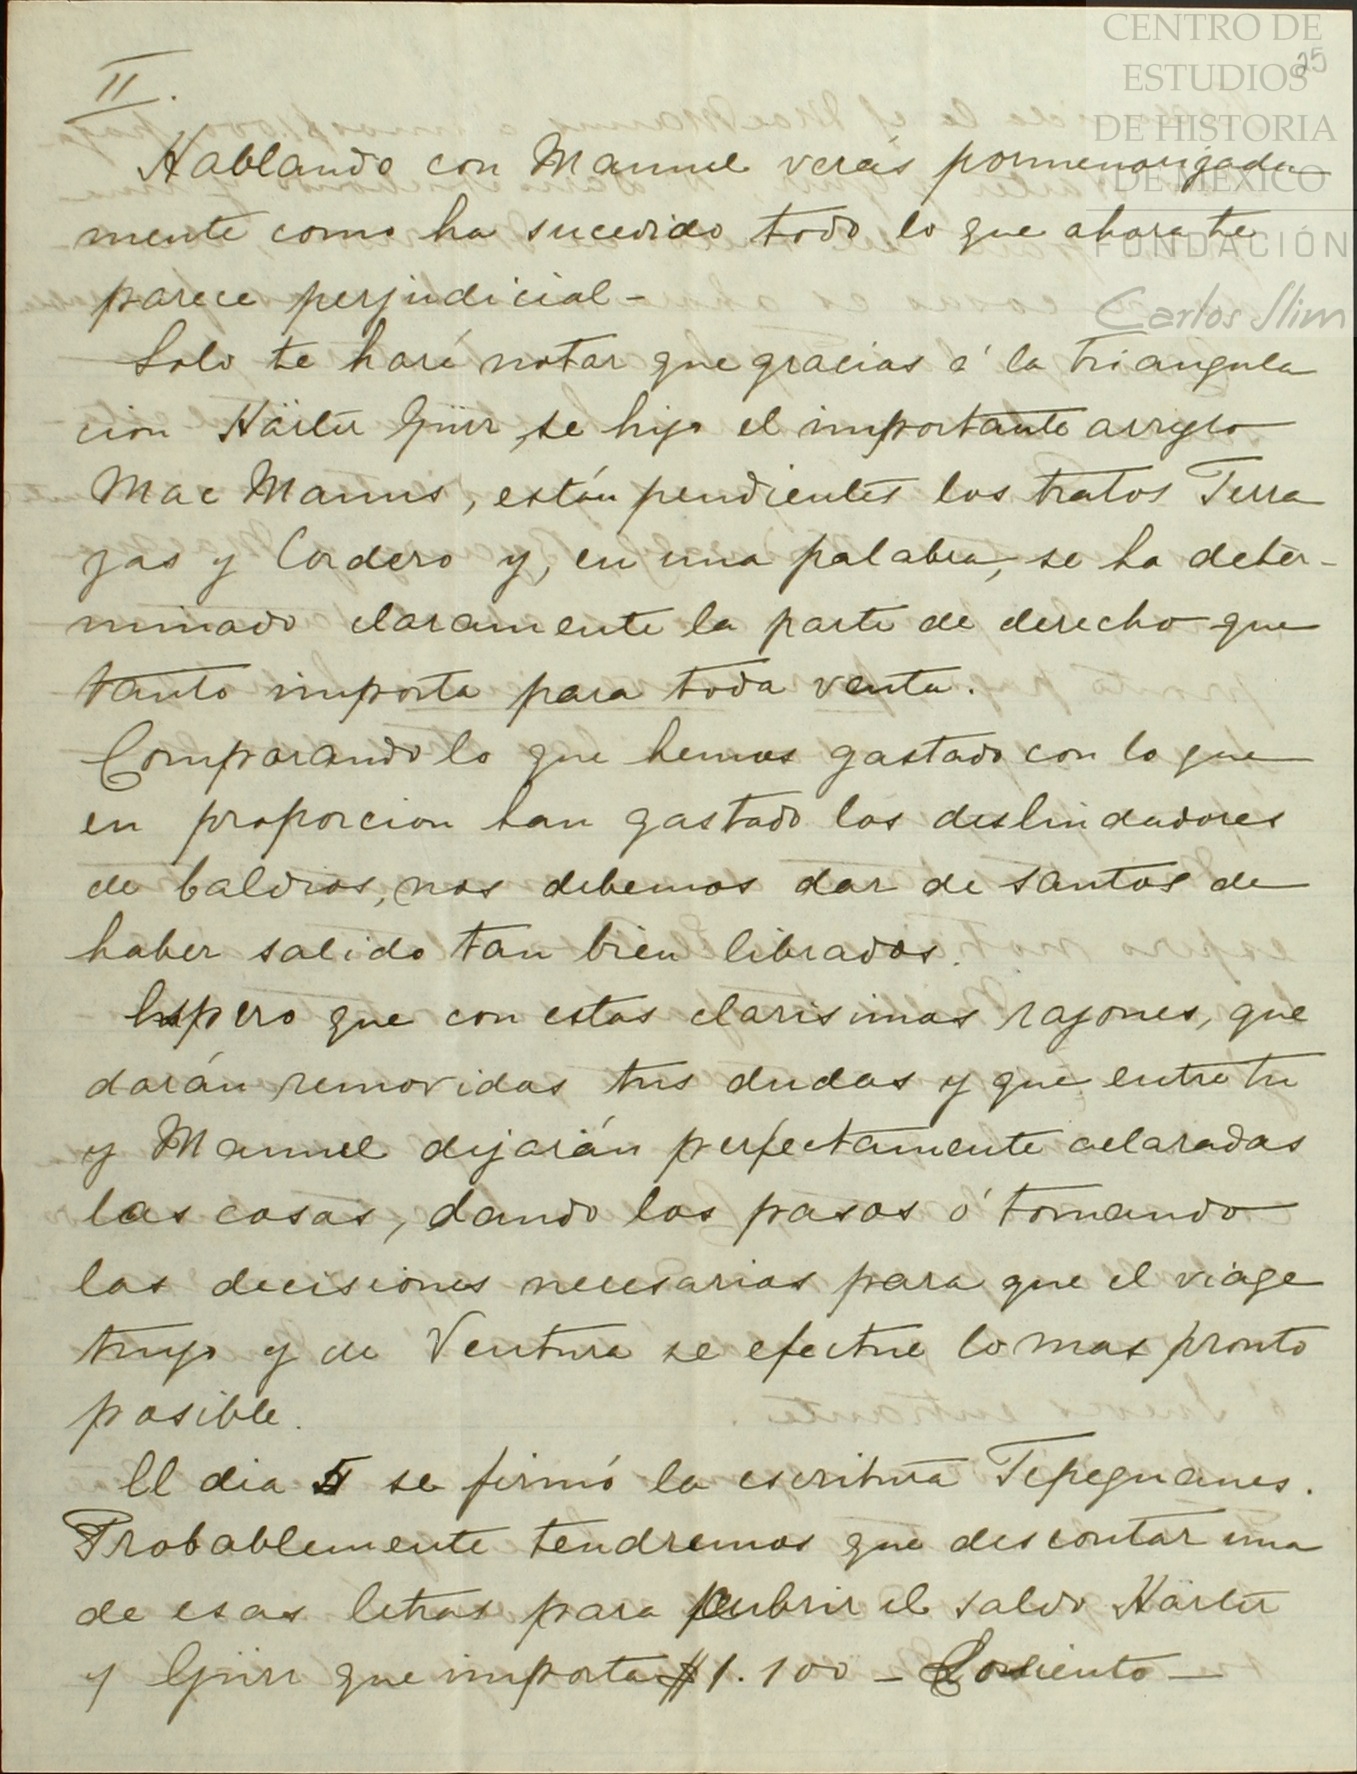 CENTRO DE
ESTUDIOS
DE HISTORIA
DE MÉXICO
FUNDACIÓN
Carlos Slim
25
II.
Hablando con Manuel verás pormenorizada
mente como ha sucedido todo lo que ahora te
parece perjudicial -
Solo te haré notar que gracias á la triangula
cion Härter Gürr, se hizo el importante arreglo
Mac Manus, están pendientes los tratos Terra
zas y Cordero y, en una palabra, se ha deter-
minado claramente la parte de derecho que
tanto importa para toda venta.
Comparando lo que hemos gastado con lo que
en proporcion han gastado los deslindadores
de baldios, nos debemos dar de santos de
haber salido tan bien librados.
Espero que con estas clarisimas razones, que
darán removidas tus dudas y que entre tu
y Manuel dejarán perfectamente aclaradas
las cosas, dando los pasos ó tomando
las decisiones necesarias para que el viage
tuyo y de Ventura se efectue lo mas pronto
posible.
El dia 5 se firmó la escritura Tepeguanes.
Probablemente tendremos que descontar una
de esas letras para cubrir el saldo Härter
y Gürr que importa $1.100 - Lo siento -